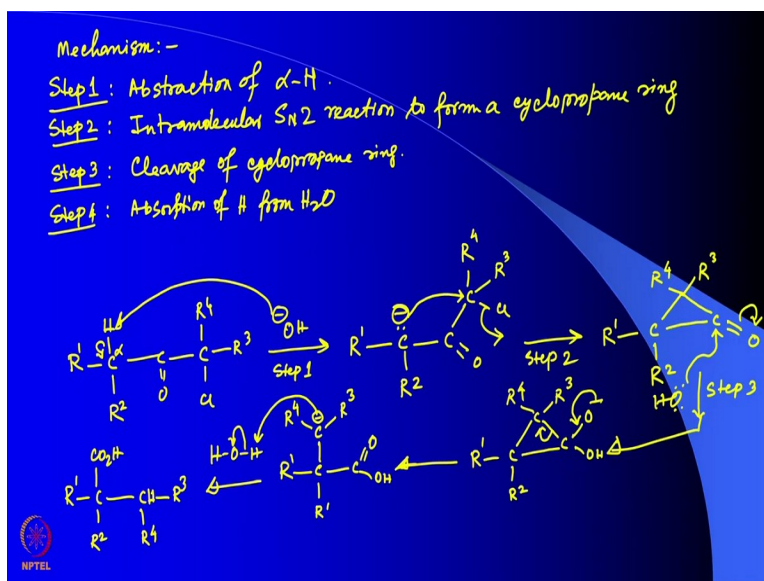 Mechanism:-
Step1: Abstraction of α-H.
Step2: Intramolecular SN2 reaction to form a cyclopropane ring
Step3: Cleavage of cyclopropane ring.
Step4: Absorption of H from H2O
H R4 ⊖OH
R1-C α-C-C-R3
R2 O Cl
Step1
R4 R3
⊖ C Cl
R1-C-C=O
R2
Step 2
R4 R3
R1-C-C=O
R2 HO
Step 3
R4 R3
C O
R1-C-C-OH
R2
R4 ⊖ R3
C
R1-C-C=O OH
R1
H-O-H
CO2H
R1-C-CH-R3
R2 R4
NPTEL